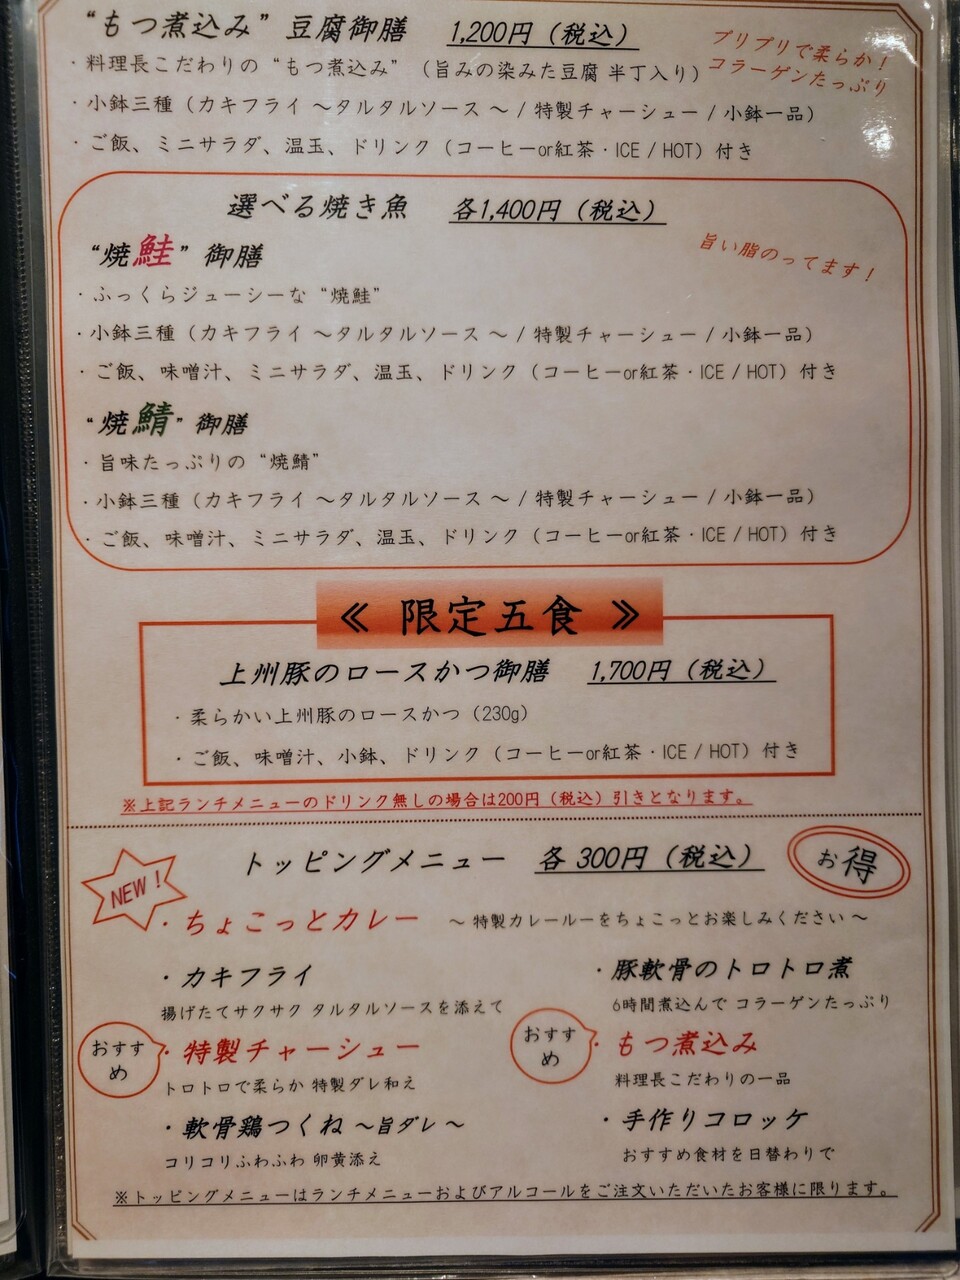 “もつ煮込み” 豆腐御膳 1,200円（税込）
プリプリで柔らか！
コラーゲンたっぷり
・料理長こだわりの“もつ煮込み”（旨みの染みた豆腐 半丁入り）
・小鉢三種（カキフライ ～タルタルソース～ / 特製チャーシュー / 小鉢一品）
・ご飯、ミニサラダ、温玉、ドリンク（コーヒーor紅茶・ICE / HOT）付き
選べる焼き魚 各1,400円（税込）
“焼鮭” 御膳
旨い脂のってます！
・ふっくらジューシーな“焼鮭”
・小鉢三種（カキフライ ～タルタルソース～ / 特製チャーシュー / 小鉢一品）
・ご飯、味噌汁、ミニサラダ、温玉、ドリンク（コーヒーor紅茶・ICE / HOT）付き
“焼鯖” 御膳
・旨味たっぷりの“焼鯖”
・小鉢三種（カキフライ ～タルタルソース～ / 特製チャーシュー / 小鉢一品）
・ご飯、味噌汁、ミニサラダ、温玉、ドリンク（コーヒーor紅茶・ICE / HOT）付き
≪ 限定五食 ≫
上州豚のロースかつ御膳 1,700円（税込）
・柔らかい上州豚のロースかつ（230g）
・ご飯、味噌汁、小鉢、ドリンク（コーヒーor紅茶・ICE / HOT）付き
※上記ランチメニューのドリンク無しの場合は200円（税込）引きとなります。
トッピングメニュー 各300円（税込）
お得
NEW！
・ちょこっとカレー ～特製カレールーをちょこっとお楽しみください～
・カキフライ
揚げたてサクサク タルタルソースを添えて
・豚軟骨のトロトロ煮
6時間煮込んで コラーゲンたっぷり
おすすめ
・特製チャーシュー
トロトロで柔らか 特製ダレ和え
おすすめ
・もつ煮込み
料理長こだわりの一品
・軟骨鶏つくね ～旨ダレ～
コリコリふわふわ 卵黄添え
・手作りコロッケ
おすすめ食材を日替わりで
※トッピングメニューはランチメニューおよびアルコールをご注文いただいたお客様に限ります。